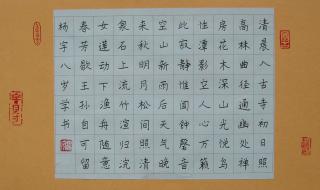 清晨入古寺初日照
高林曲径通幽处禅
房花木深山光悦鸟
性潭影空人心万籁
此俱寂惟闻钟磬音
空山新雨后天气晚
来秋明月松间照清
泉石上流竹喧归浣
女莲动下渔舟随意
春芳歇王孙自可留
杨宇八岁学书